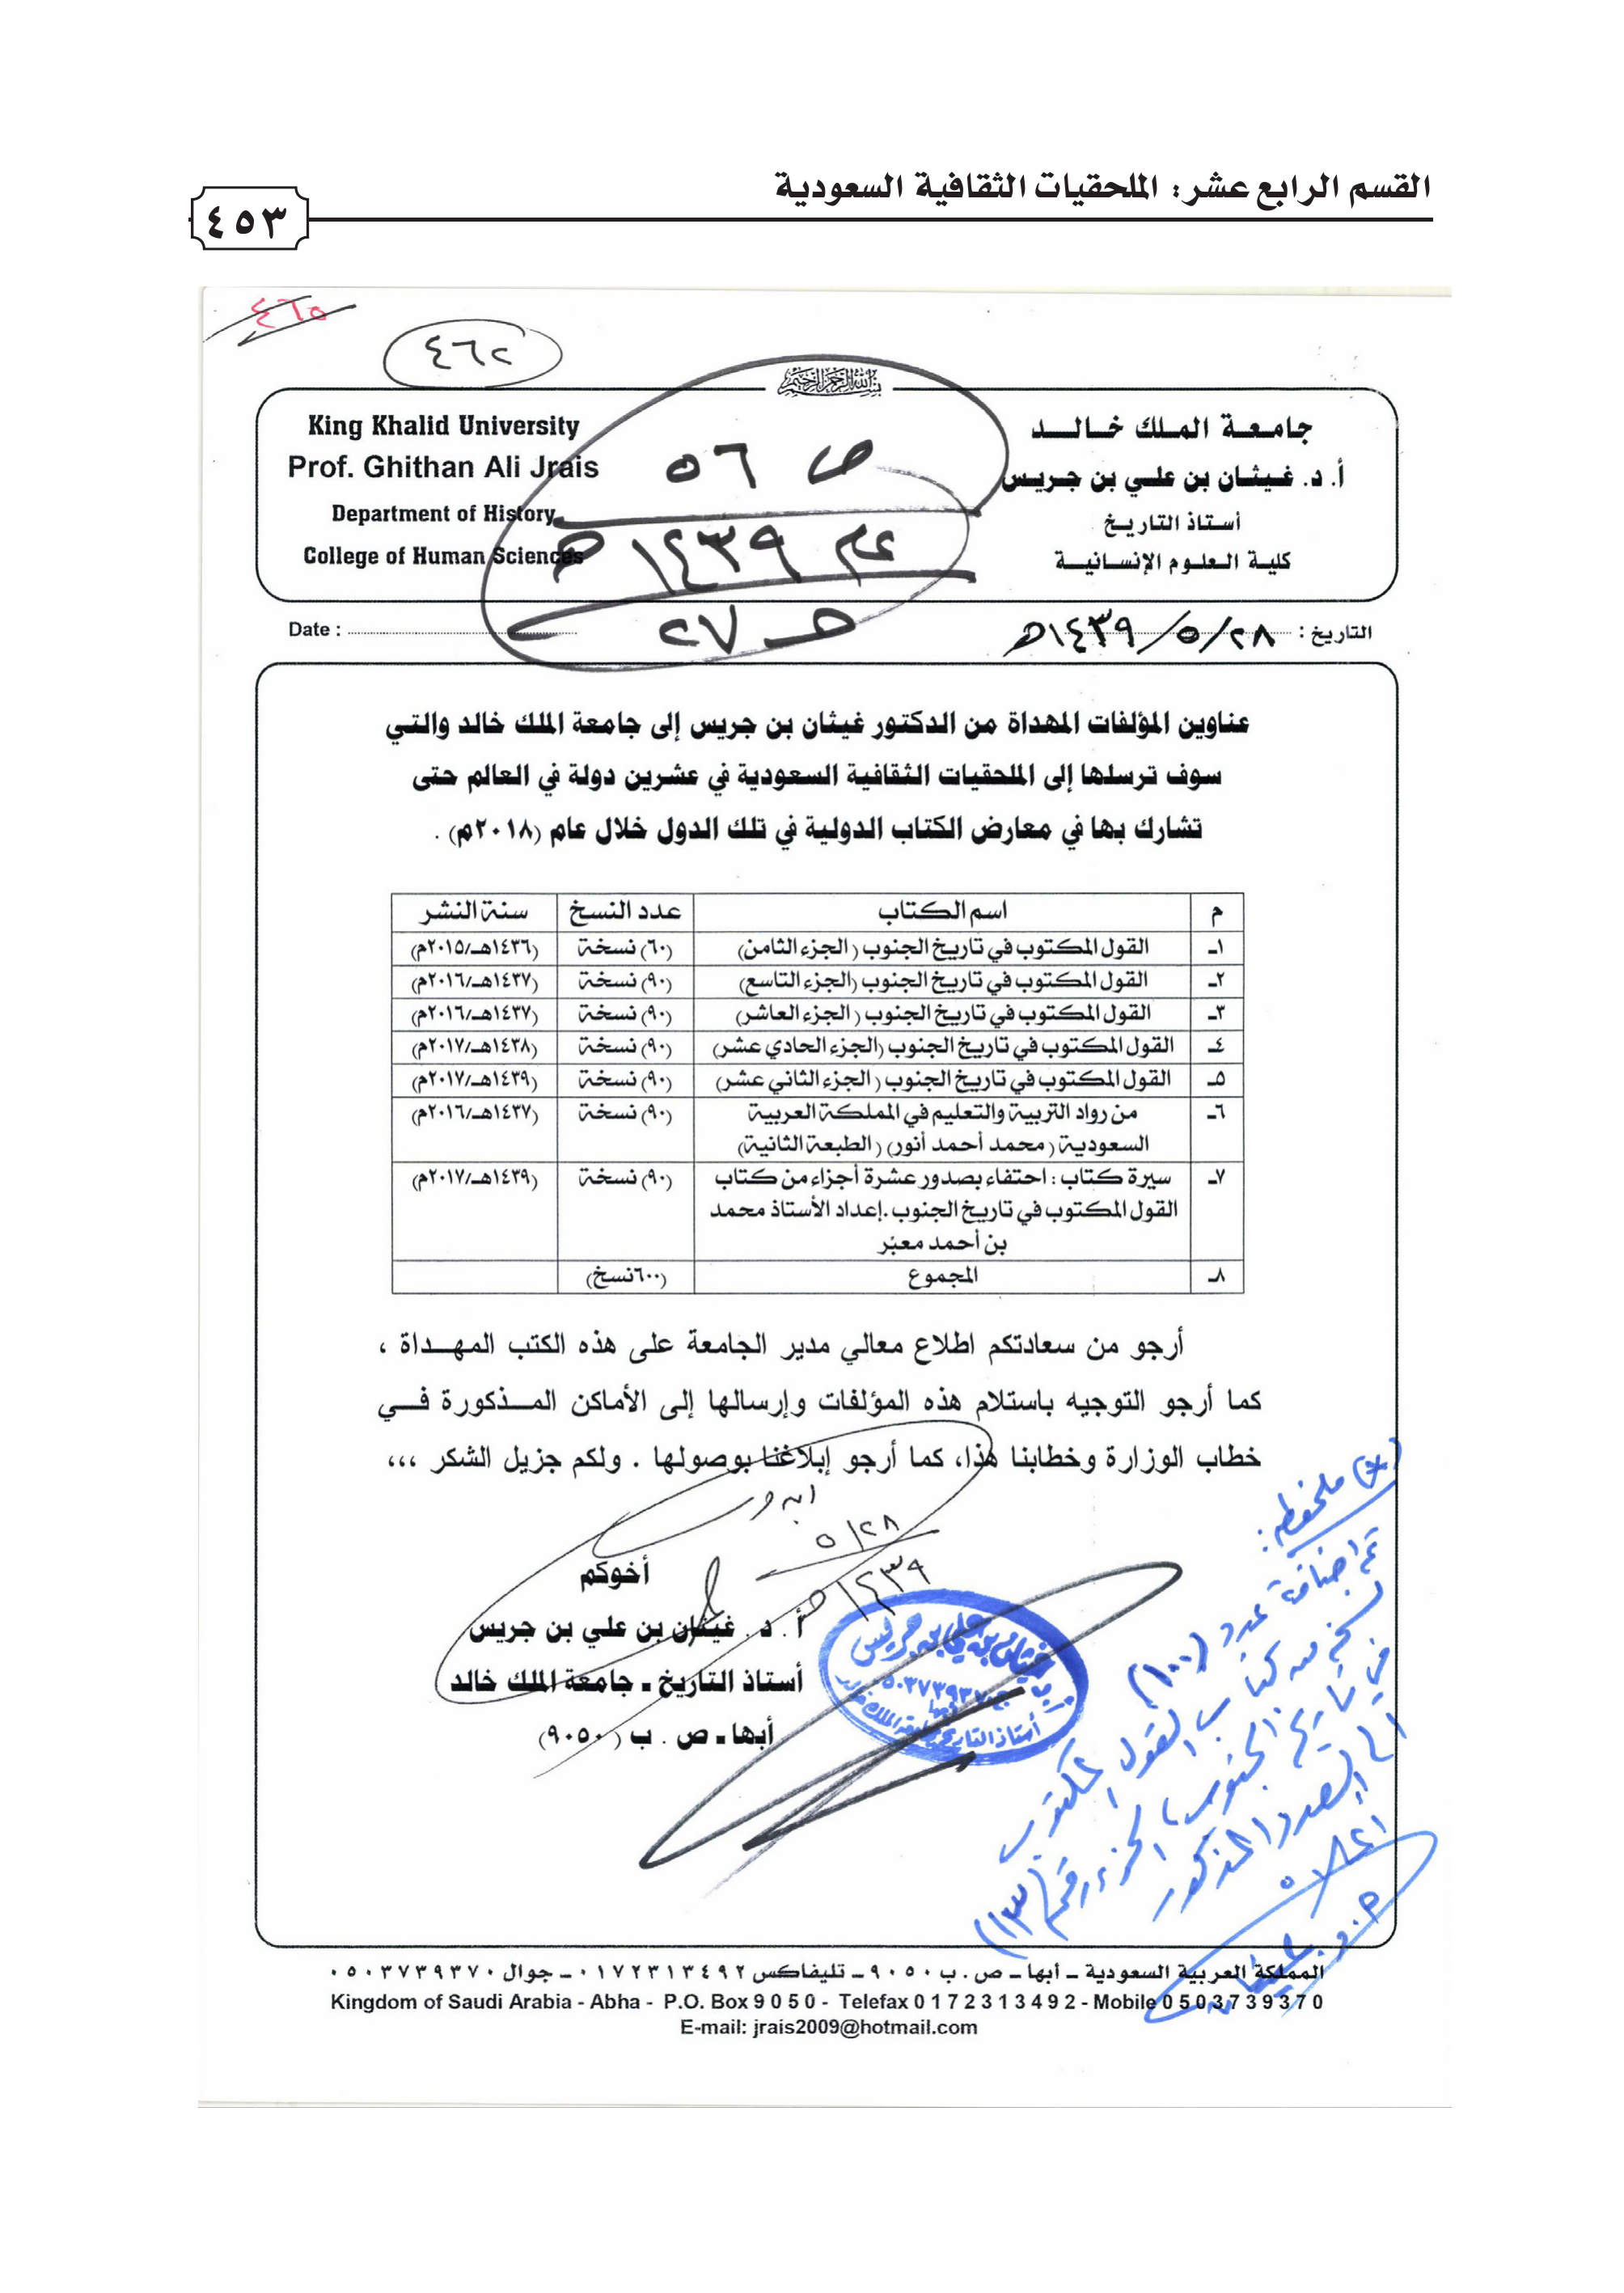 القسم الرابع عشر: الملحقيات الثقافية السعودية
٤٥٣
٤٦٥
٤٦٢
بسم الله الرحمن الرحيم
جامعة الملك خالد
أ. د. غيثان بن علي بن جريس
أستاذ التاريخ
كلية العلوم الإنسانية
King Khalid University
Prof. Ghithan Ali Jrais
Department of History
College of Human Sciences
ص ٥٦
عام ١٤٣٩هـ
ص ٢٧
التاريخ : ٢٨/٥/١٤٣٩هـ
Date :
عناوين المؤلفات المهداة من الدكتور غيثان بن جريس إلى جامعة الملك خالد والتي
سوف ترسلها إلى الملحقيات الثقافية السعودية في عشرين دولة في العالم حتى
تشارك بها في معارض الكتاب الدولية في تلك الدول خلال عام (٢٠١٨م) .
م اسم الكتاب عدد النسخ سنة النشر
١ـ القول المكتوب في تاريخ الجنوب (الجزء الثامن) (٦٠) نسخة (١٤٣٦هـ/٢٠١٥م)
٢ـ القول المكتوب في تاريخ الجنوب (الجزء التاسع) (٩٠) نسخة (١٤٣٧هـ/٢٠١٦م)
٣ـ القول المكتوب في تاريخ الجنوب (الجزء العاشر) (٩٠) نسخة (١٤٣٧هـ/٢٠١٦م)
٤ـ القول المكتوب في تاريخ الجنوب (الجزء الحادي عشر) (٩٠) نسخة (١٤٣٨هـ/٢٠١٧م)
٥ـ القول المكتوب في تاريخ الجنوب (الجزء الثاني عشر) (٩٠) نسخة (١٤٣٩هـ/٢٠١٧م)
٦ـ من رواد التربية والتعليم في المملكة العربية (٩٠) نسخة (١٤٣٧هـ/٢٠١٦م)
السعودية (محمد أحمد أنور) (الطبعة الثانية)
٧ـ سيرة كتاب : احتفاء بصدور عشرة أجزاء من كتاب (٩٠) نسخة (١٤٣٩هـ/٢٠١٧م)
القول المكتوب في تاريخ الجنوب .إعداد الأستاذ محمد
بن أحمد معبّر
٨ـ المجموع (٦٠٠نسخ)
أرجو من سعادتكم اطلاع معالي مدير الجامعة على هذه الكتب المهداة ،
كما أرجو التوجيه باستلام هذه المؤلفات وإرسالها إلى الأماكن المذكورة في
خطاب الوزارة وخطابنا هذا، كما أرجو إبلاغنا بوصولها . ولكم جزيل الشكر ،،،
٥/٢٨
١٤٣٩هـ
أخوكم
أ . د . غيثان بن علي بن جريس
أستاذ التاريخ ـ جامعة الملك خالد
أبها ـ ص . ب (٩٠٥٠)
(*) ملحوظة:
تم إضافة عدد (١٠٠)
نسخة من كتاب القول المكتوب
في تاريخ الجنوب، الجزء رقم (١٣)
إلى العدد المذكور
أعلاه
المملكة العربية السعودية ـ أبها ـ ص . ب ٩٠٥٠ ـ تليفاكس ٠١٧٢٣١٣٤٩٢ ـ جوال ٠٥٠٣٧٣٩٣٧٠
Kingdom of Saudi Arabia - Abha - P.O. Box 9 0 5 0 - Telefax 0 1 7 2 3 1 3 4 9 2 - Mobile 0 5 0 3 7 3 9 3 7 0
E-mail: jrais2009@hotmail.com